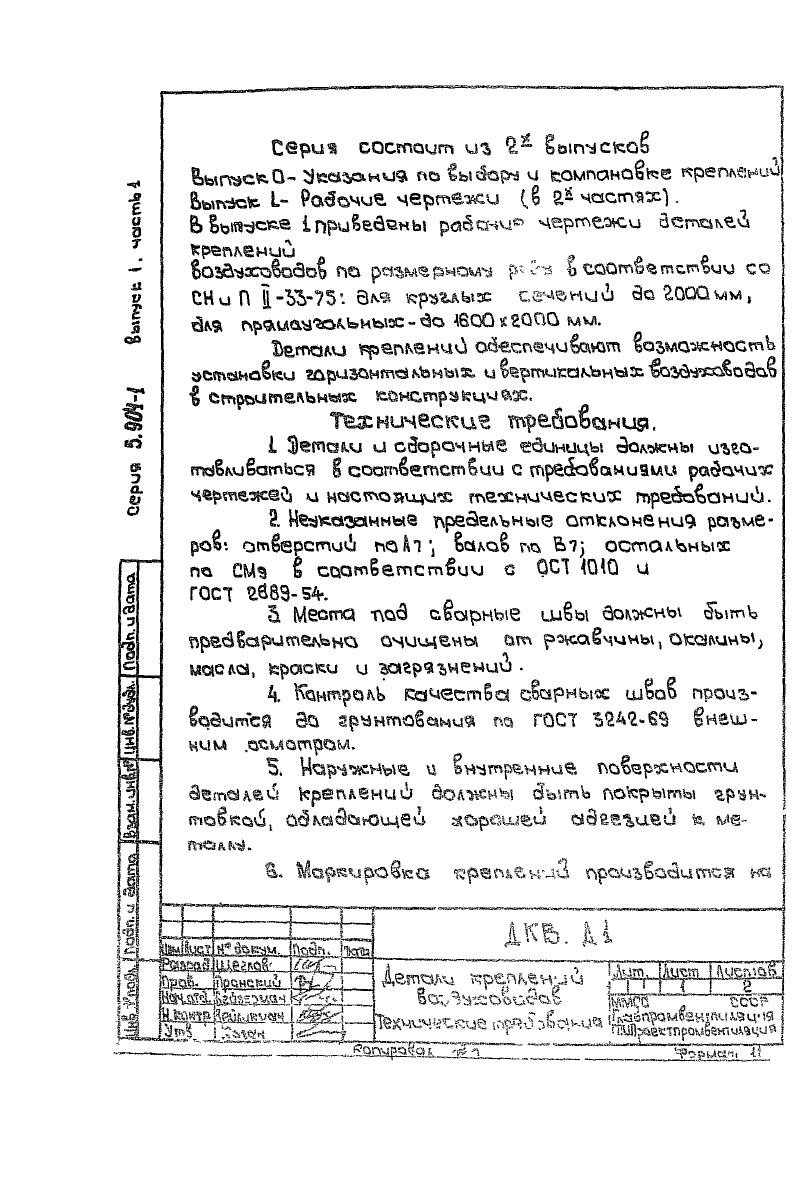 Серия состоит из 2х выпусков
Выпуск 0- Указания по выбору и компановке креплений
Выпуск 1- Рабочие чертежи (в 2х частях).
В выпуске 1 приведены рабочие чертежи деталей
креплений
воздуховодов по размерному ряду в соответствии со
СНиП II-33-75: для круглых сечений до 2000 мм,
для прямоугольных - до 1600х2000 мм.
Детали креплений обеспечивают возможность
установки горизонтальных и вертикальных воздуховодов
в строительных конструкциях.
Технические требования.
1. Детали и сборочные единицы должны изго-
товливаться в соответствии с требованиями рабочих
чертежей и настоящих технических требований.
2. Неуказанные предельные отклонения разме-
ров: отверстий по А7; валов по В7; остальных
по СМ9 в соответствии с ОСТ 1010 и
ГОСТ 2689-54.
3. Места под сварные швы должны быть
предварительно очищены от ржавчины, окалины,
масла, краски и загрязнений.
4. Контроль качества сварных швов произ-
водится до грунтования по ГОСТ 3242-69 внеш-
ним осмотром.
5. Наружные и внутренние поверхности
деталей креплений должны быть покрыты грун-
товкой, обладающей хорошей адгезией к ме-
таллу.
6. Маркировка креплений производится на
Серия 5.904-1 выпуск 1. часть 1
Подп. и дата
Инв.№дубл.
Взам.инв№
Подп. и дата
Инв.№подл.
ДКВ. Д1
Изм Лист № докум. Подп. Дата
Разраб Щеглов
Пров. Пронский
Нач.отд.
Н.контр
Утв
Детали креплений
воздуховодов
Технические требования
Лит. Лист Листов
1 2
ММСС СССР
Главпромвентиляция
ГПИ Проектпромвентиляция
Копировал
Формат 11